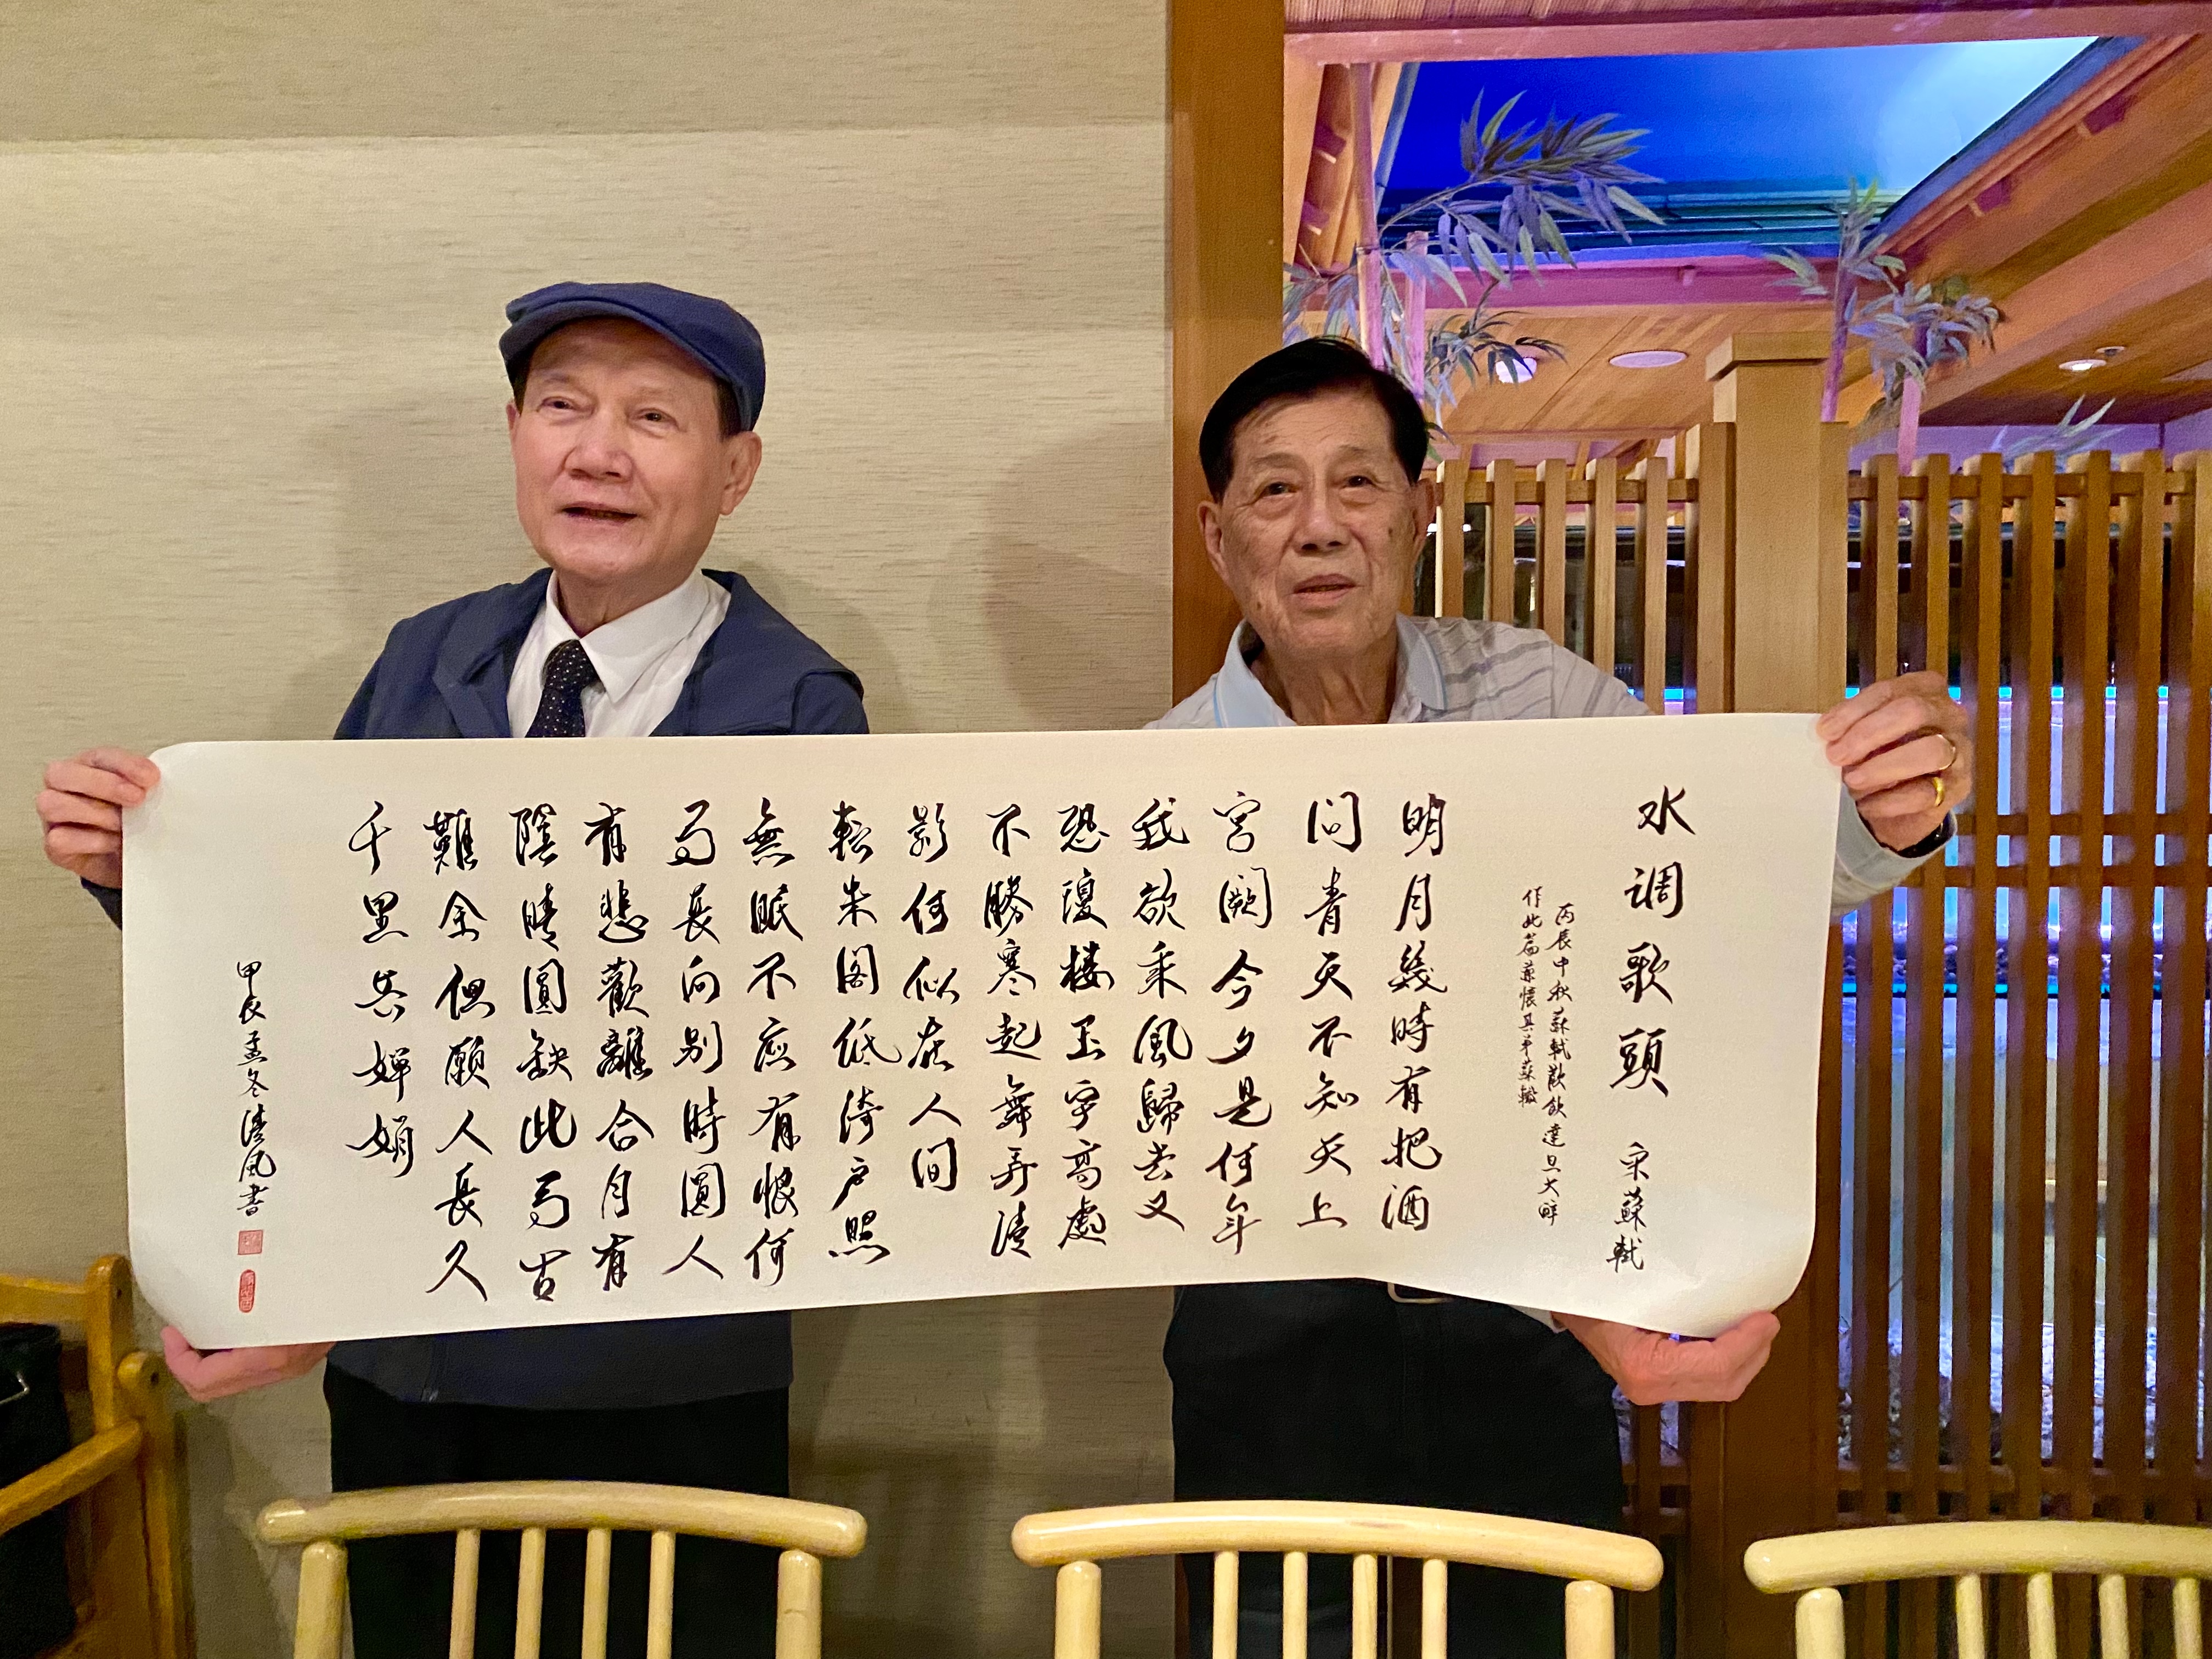 水调歌頭 宋蘇軾
丙辰中秋蘇軾歡飲達旦大醉
作此篇兼懷其弟蘇轍
明月幾時有把酒
问青天不知天上
宮阙今夕是何年
我欲乘風歸去又
恐瓊楼玉宇高處
不勝寒起舞弄清
影何似在人间
転朱阁低绮户照
無眠不应有恨何
事長向别時圓人
有悲歡離合月有
陰晴圓缺此事古
難全但願人長久
千里共婵娟
甲辰孟冬清風書